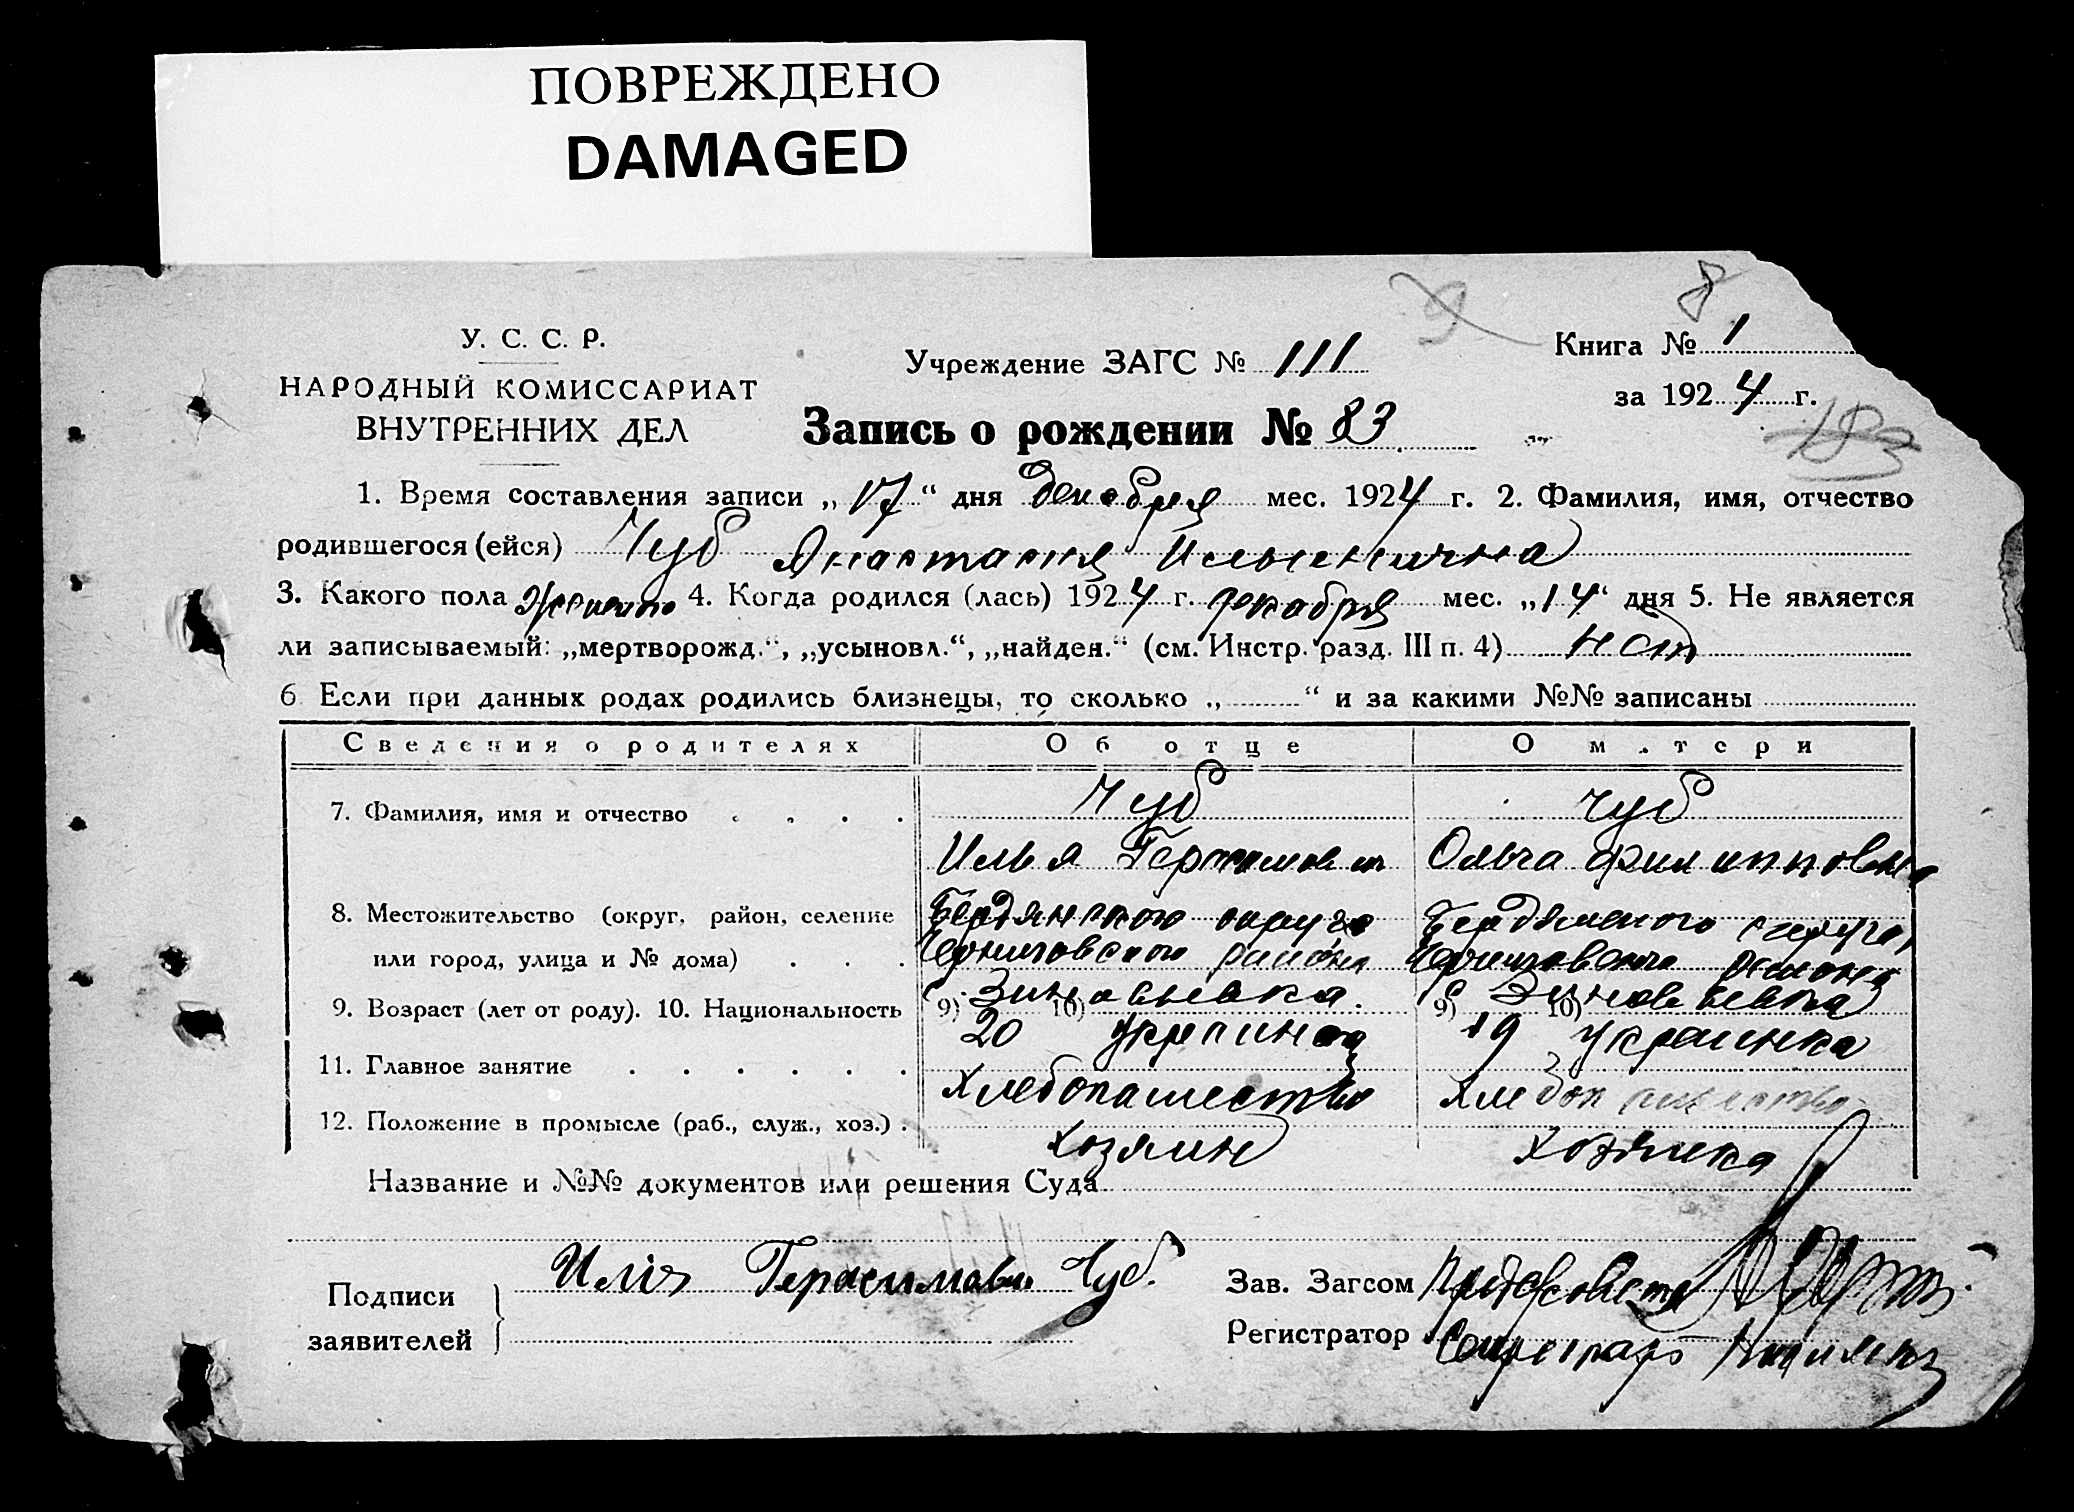 ПОВРЕЖДЕНО
DAMAGED
9
8
У. С. С. Р.
НАРОДНЫЙ КОМИССАРИАТ
ВНУТРЕННИХ ДЕЛ
Учреждение ЗАГС № 111
Книга № 1
за 1924 г.
183
Запись о рождении № 83
1. Время составления записи „17“ дня Декабря мес. 1924 г. 2. Фамилия, имя, отчество
родившегося (ейся) Чуб Анастасия Ильинична
3. Какого пола женского 4. Когда родился (лась) 1924 г. декабря мес. „14“ дня 5. Не является
ли записываемый: „мертворожд.“, „усыновл.“, „найден.“ (см. Инстр. разд. III п. 4) нет
6 Если при данных родах родились близнецы, то сколько „ “ и за какими №№ записаны
Сведения о родителях Об отце О матери
7. Фамилия, имя и отчество Чуб Чуб
Илья Герасимович Ольга Филипповна
8. Местожительство (округ, район, селение Бердянского округа Бердянского округа,
или город, улица и № дома) Черниговского района Черниговского района
9. Возраст (лет от роду). 10. Национальность 9) 10) С. Зиновьевка. 9) 10) С. Зиновьевка
20 украинец 19 украинка
11. Главное занятие Хлебопашество Хлебопашество
12. Положение в промысле (раб., служ., хоз.) Хозяин Хозяйка
Название и №№ документов или решения Суда
Подписи
заявителей
Илія Герасимович Чуб.
Зав. Загсом Пред. с/совета
Регистратор Секретарь